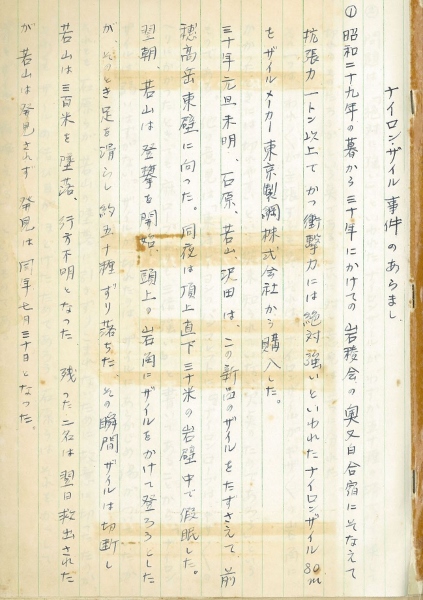 ナイロン・ザイル事件のあらまし、
① 昭和二十九年の暮から三十年にかけての岩稜会の奥又白合宿にそなえて
抗張力一トン以上でかつ衝撃力には絶対強いといわれたナイロンザイル80m
をザイルメーカー東京製綱株式会社から購入した。
三十年元旦未明、石原、若山、沢田は、この新品のザイルをたずさえて前
穂高岳東壁に向った。同夜は頂上直下三十米の岩壁中で仮眠した。
翌朝、若山は登攀を開始、頭上の岩角にザイルをかけて登ろうとした
が、そのとき足を滑らし約五十糎ずり落ちた、その瞬間ザイルは切断し
若山は三百米を墜落、行方不明となった、残った二名は翌日救出された
が若山は発見されず発見は同年七月三十日となった。